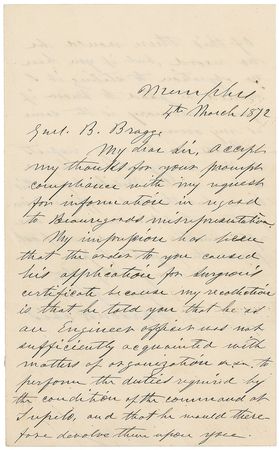 Memphis
4th March 1872
Genl. B. Bragg
My dear Sir, accept
my thanks for your prompt
compliance with my request
for information in regard
to Beauregard's misrepresentation.
My impression has been
that the order to you caused
his application for Surgeon's
certificate because my recollection
is that he told you that he as
an Engineer officer was not
sufficiently acquainted with
matters of organization &c, to
perform the duties required by
the condition of the command at
Tupelo, and that he would there
fore devolve them upon you.